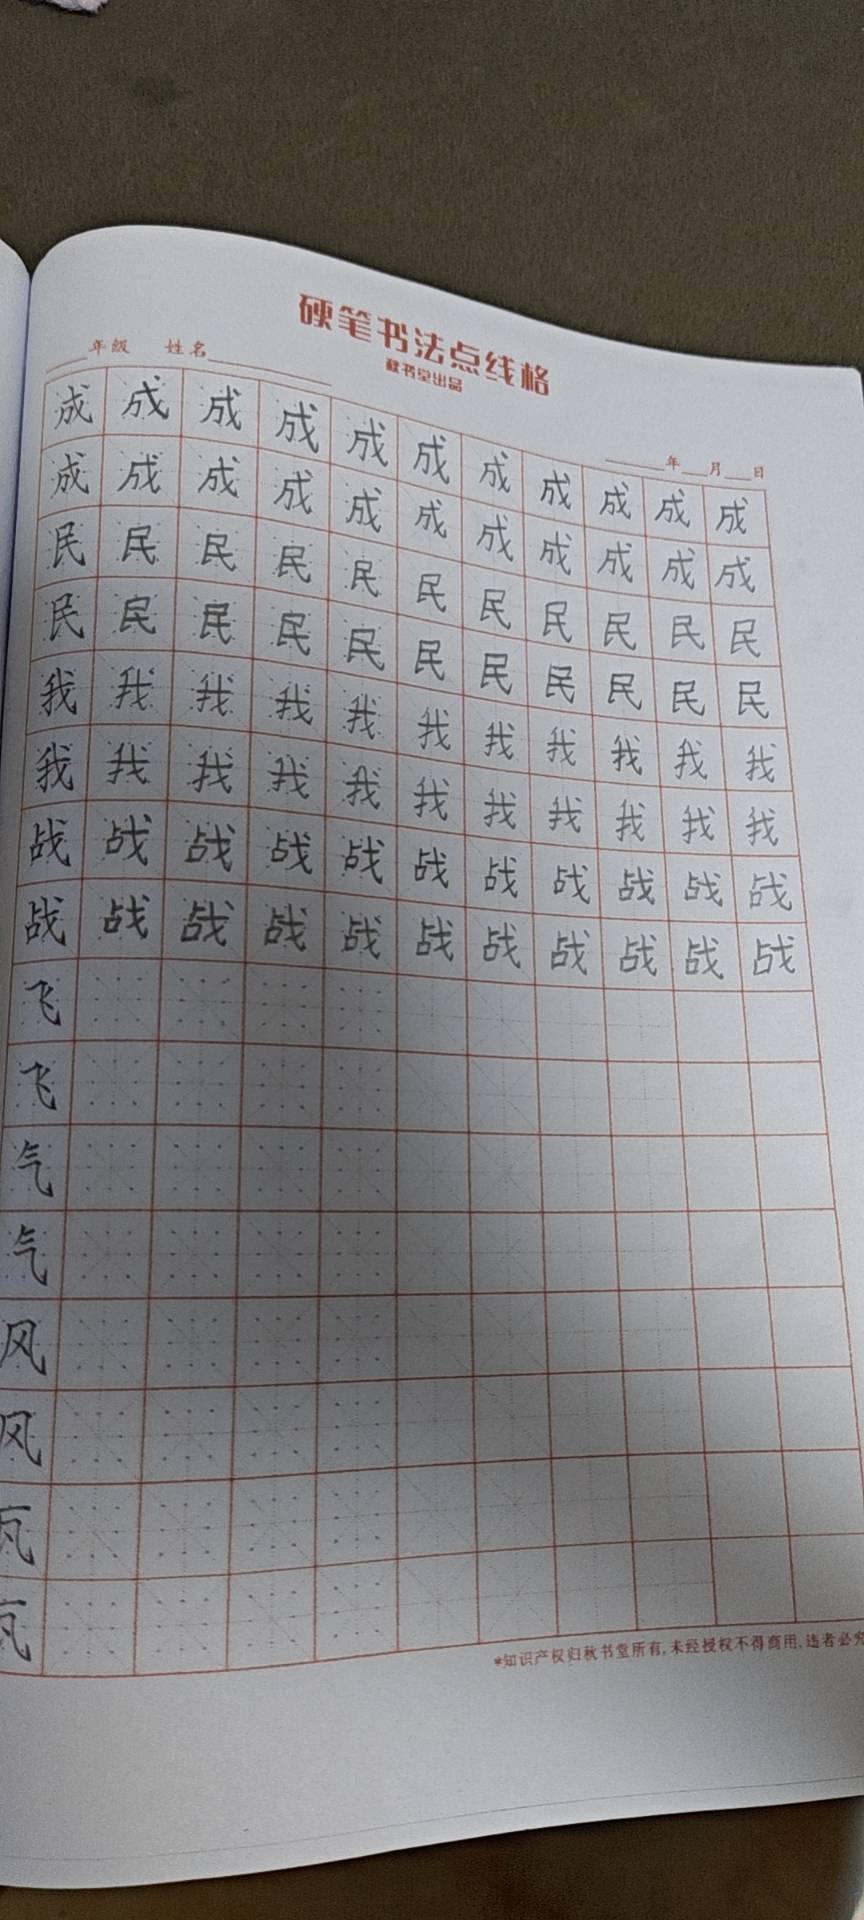 硬笔书法点线格
秋书堂出品
年级 姓名
年 月 日
成成成成成成成成成成成
成成成成成成成成成成成
民民民民民民民民民民民
民民民民民民民民民民民
我我我我我我我我我我我
我我我我我我我我我我我
战战战战战战战战战战战
战战战战战战战战战战战
飞
飞
气
气
风
风
瓦
瓦
*知识产权归秋书堂所有,未经授权不得商用,违者必究